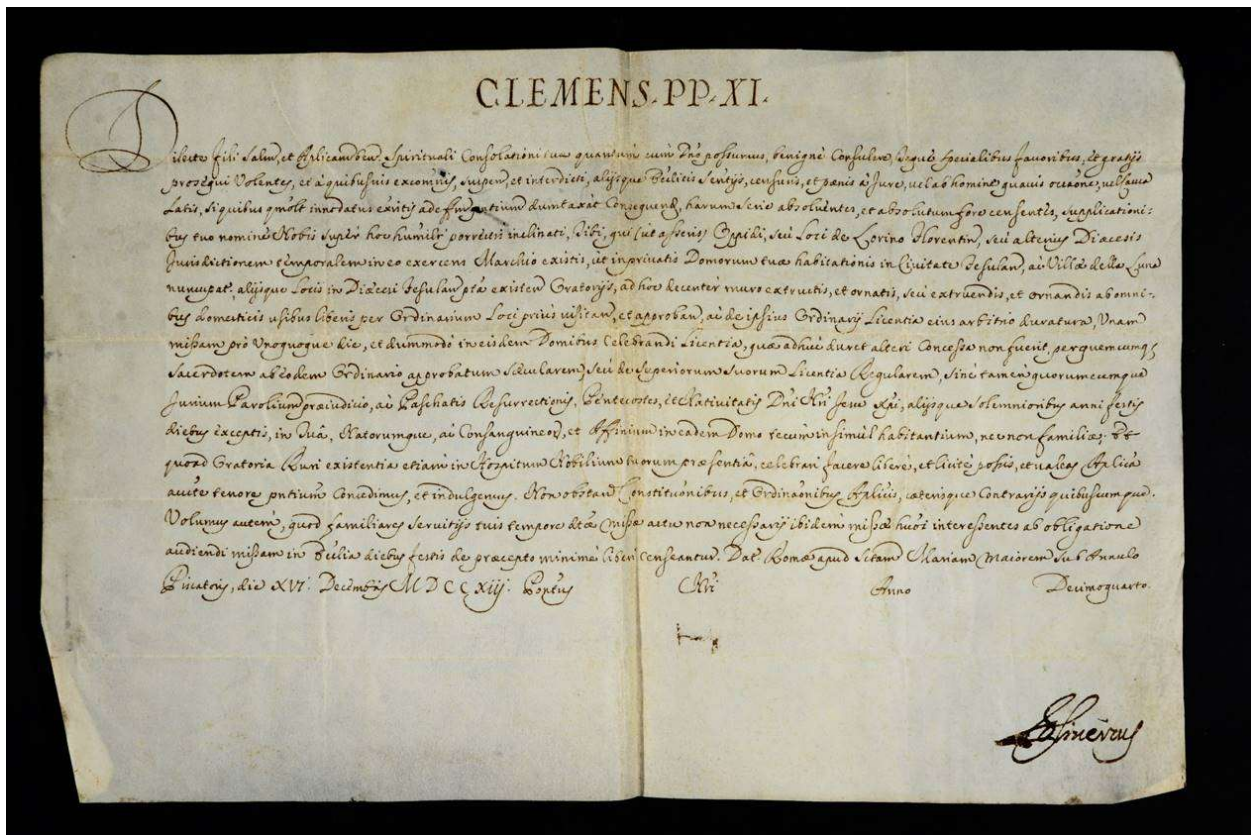 CLEMENS. PP. XI.
Dilecte Fili Salm, et Aplicam ben. Spirituali Consolationi tuæ quantum cum Dno possumus, benignè Consulere, Teque specialibus favoribus, et gratijs
prosequi Volentes, et à quibusvis excomnis, suspen, et interdicti, alijsque Ecclicis Sentijs, censuris, et pænis à Jure, vel ab homine quavis occaone, vel causa
Latis, si quibus qmolt innodatus existis ad effm pntium dumtaxat Consequend, harum serie absolventes, et absolutum fore censentes, supplicationi-
bus tuo nomine Nobis super hoc humilr porrectis inclinati, Tibi, qui (ut asseris) Oppidi, seu Loci de Lorino Florentin, seu alterius Diæcesis
Jurisdictionem temporalem in eo exercens Marchio existis, ut in privatis Domorum tuæ habitationis in Civitate Fesulan, ac Villæ della Luna
nuncupat, alijsque Locis in Diæcesi Fesulan pta existen Oratorijs, ad hoc decenter muro extructis, et ornatis, seu extruendis, et ornandis ab omni-
bus domesticis usibus liberis per Ordinarium Loci priùs visitan, et approban, ac de ipsius Ordinarij Licentia eius arbitrio duratura, Unam
missam prò Unoquoque die, et dummodò in eisdem Domibus Celebrandi Licentia, quæ adhuc duret alteri Concessa non fuerit, per quemcumq;
Sacerdotem ab eodem Ordinario approbatum Sæcularem, seu de Superiorum suorum Licentia Regularem, sinè tamen quorumcumque
Jurium Parolium præiudicio, ac Paschatis Resurrectionis, Pentecostes, et Nativitatis Dni Nri Jesu Xpi, alijsque solemnioribus anni festis
diebus exceptis, in Tuâ, Natorumque, ac Consanguineor, et Affinium in eadem Domo tecum insimul habitantium, nec non familiæ, et
quoad Oratoria Ruri existentia etiam in Hospitum Nobilium tuorum præsentiâ, celebrari facere liberè, et licitè possis, et valeas Aplica
aucte tenore pntium Concedimus, et indulgemus. Non obstan Constituonibus, et Ordinaonibus Aplicis, cæterisque Contrarijs quibuscumque.
Volumus autem, quod familiares Servitijs tuis tempore dtæ missæ actu non necessarij ibidem missæ huoi interessentes ab obligatione
audiendi missam in Ecclia diebus festis de præcepto minimè liberi Censeantur. Dat. Romæ apud Sctam Mariam Maiorem sub Annulo
Piscatoris, die XVI. Decembris MDCCXIIJ. Pontus Nri Anno Decimoquarto.